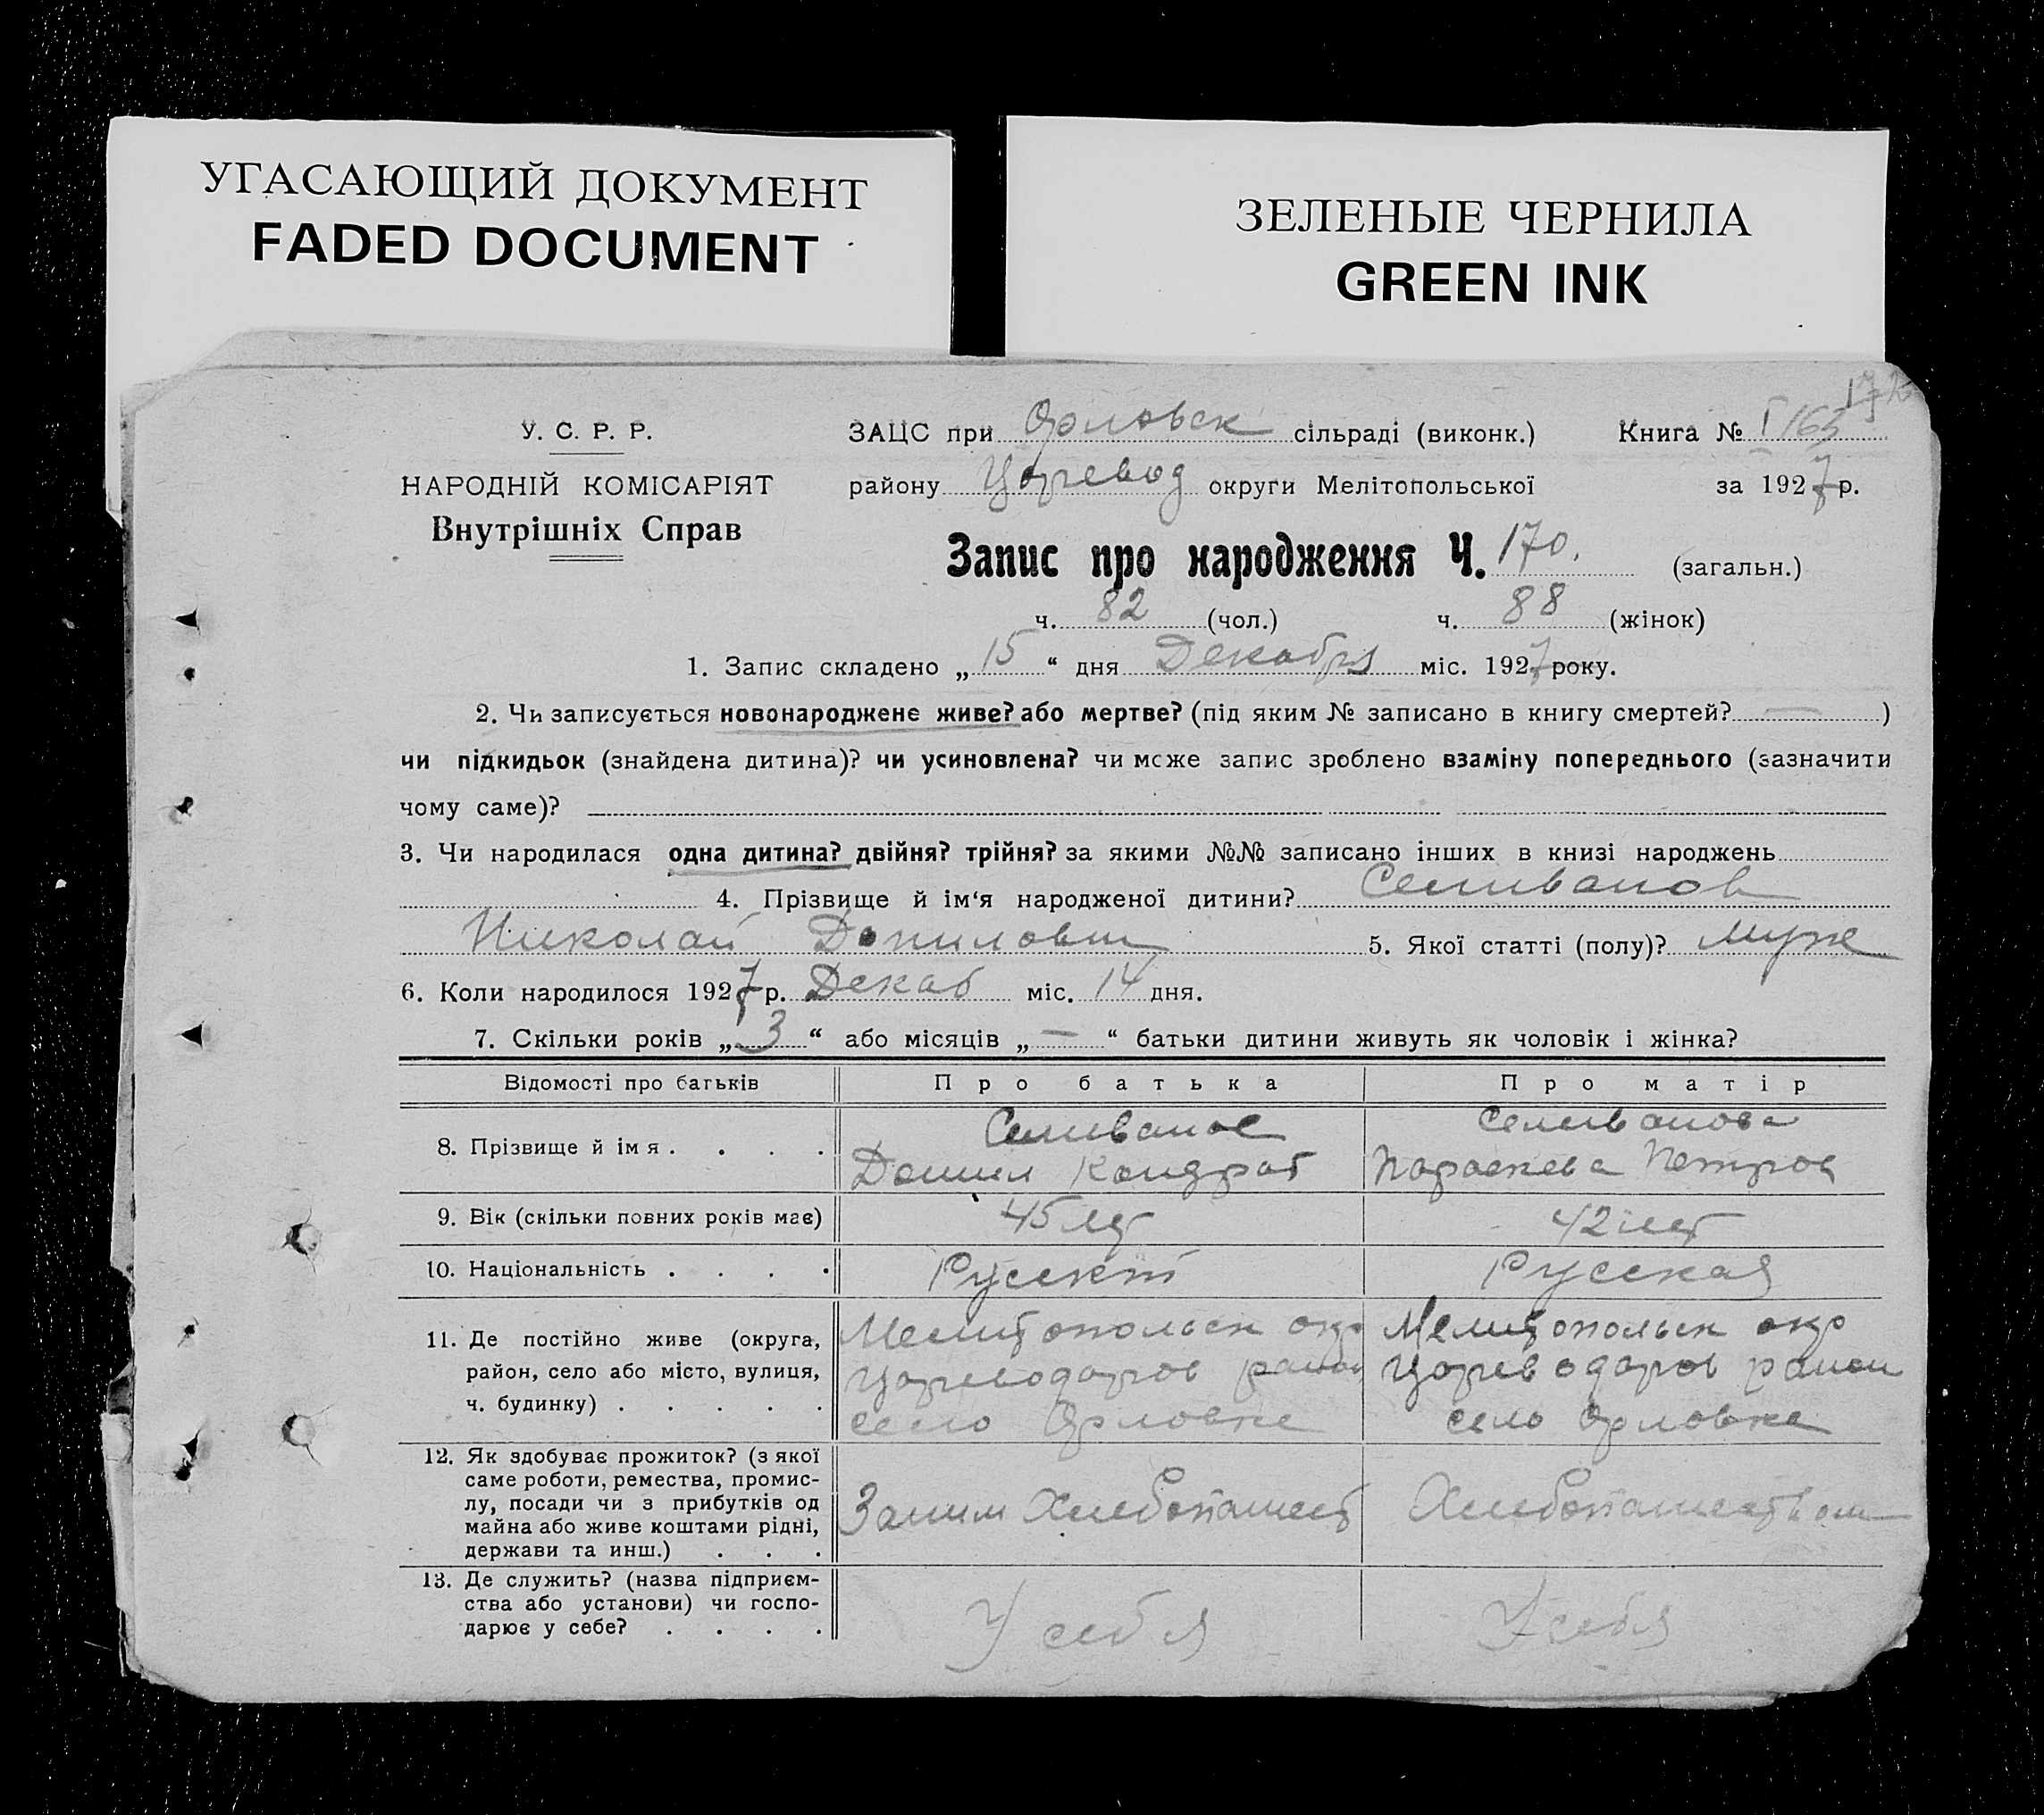 УГАСАЮЩИЙ ДОКУМЕНТ
FADED DOCUMENT
ЗЕЛЕНЫЕ ЧЕРНИЛА
GREEN INK
У. С. Р. Р.
НАРОДНІЙ КОМІСАРІЯТ
Внутрішніх Справ
ЗАЦС при Орловск сільраді (виконк.) Книга № I/163
району Царевод округи Мелітопольської за 1927 р.
Запис про народження Ч. 170. (загальн.)
ч. 82 (чол.) ч. 88 (жінок)
1. Запис складено „ 15 “ дня Декабря міс. 1927 року.
2. Чи записується новонароджене живе? або мертве? (під яким № записано в книгу смертей? — )
чи підкидьок (знайдена дитина)? чи усиновлена? чи може запис зроблено взаміну попереднього (зазначити
чому саме)?
3. Чи народилася одна дитина? двійня? трійня? за якими №№ записано інших в книзі народжень
4. Прізвище й ім‘я народженої дитини? Селиванов
Николай Данилович 5. Якої статті (полу)? Муже
6. Коли народилося 1927 р. Декаб міс. 14 дня.
7. Скільки років „ 3 “ або місяців „ — “ батьки дитини живуть як чоловік і жінка?
Відомості про батьків Про батька Про матір
8. Прізвище й імя . . . . Селиванов Данил Кондрат Селиванова Параскева Петров
9. Вік (скільки повних років має) 45 лет 42 лет
10. Національність . . . . Русский Русская
11. Де постійно живе (округа, Мелитопольск окр Мелитопольск окр
район, село або місто, вулиця, Цареводаров район Цареводаров район
ч. будинку) . . . . . село Орловка село Орловка
12. Як здобуває прожиток? (з якої
саме роботи, ремества, промис-
лу, посади чи з прибутків од Заним Хлебопашест Хлебопашеством
майна або живе коштами рідні,
держави та инш.) . . .
13. Де служить? (назва підприєм-
ства або установи) чи госпо- У себя У себя
дарює у себе? . . . .